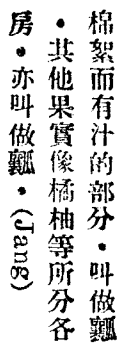 棉絮而有汁的部分・叫做瓤
・其他果實像橘柚等所分各
房・亦叫做瓤・(Jang)